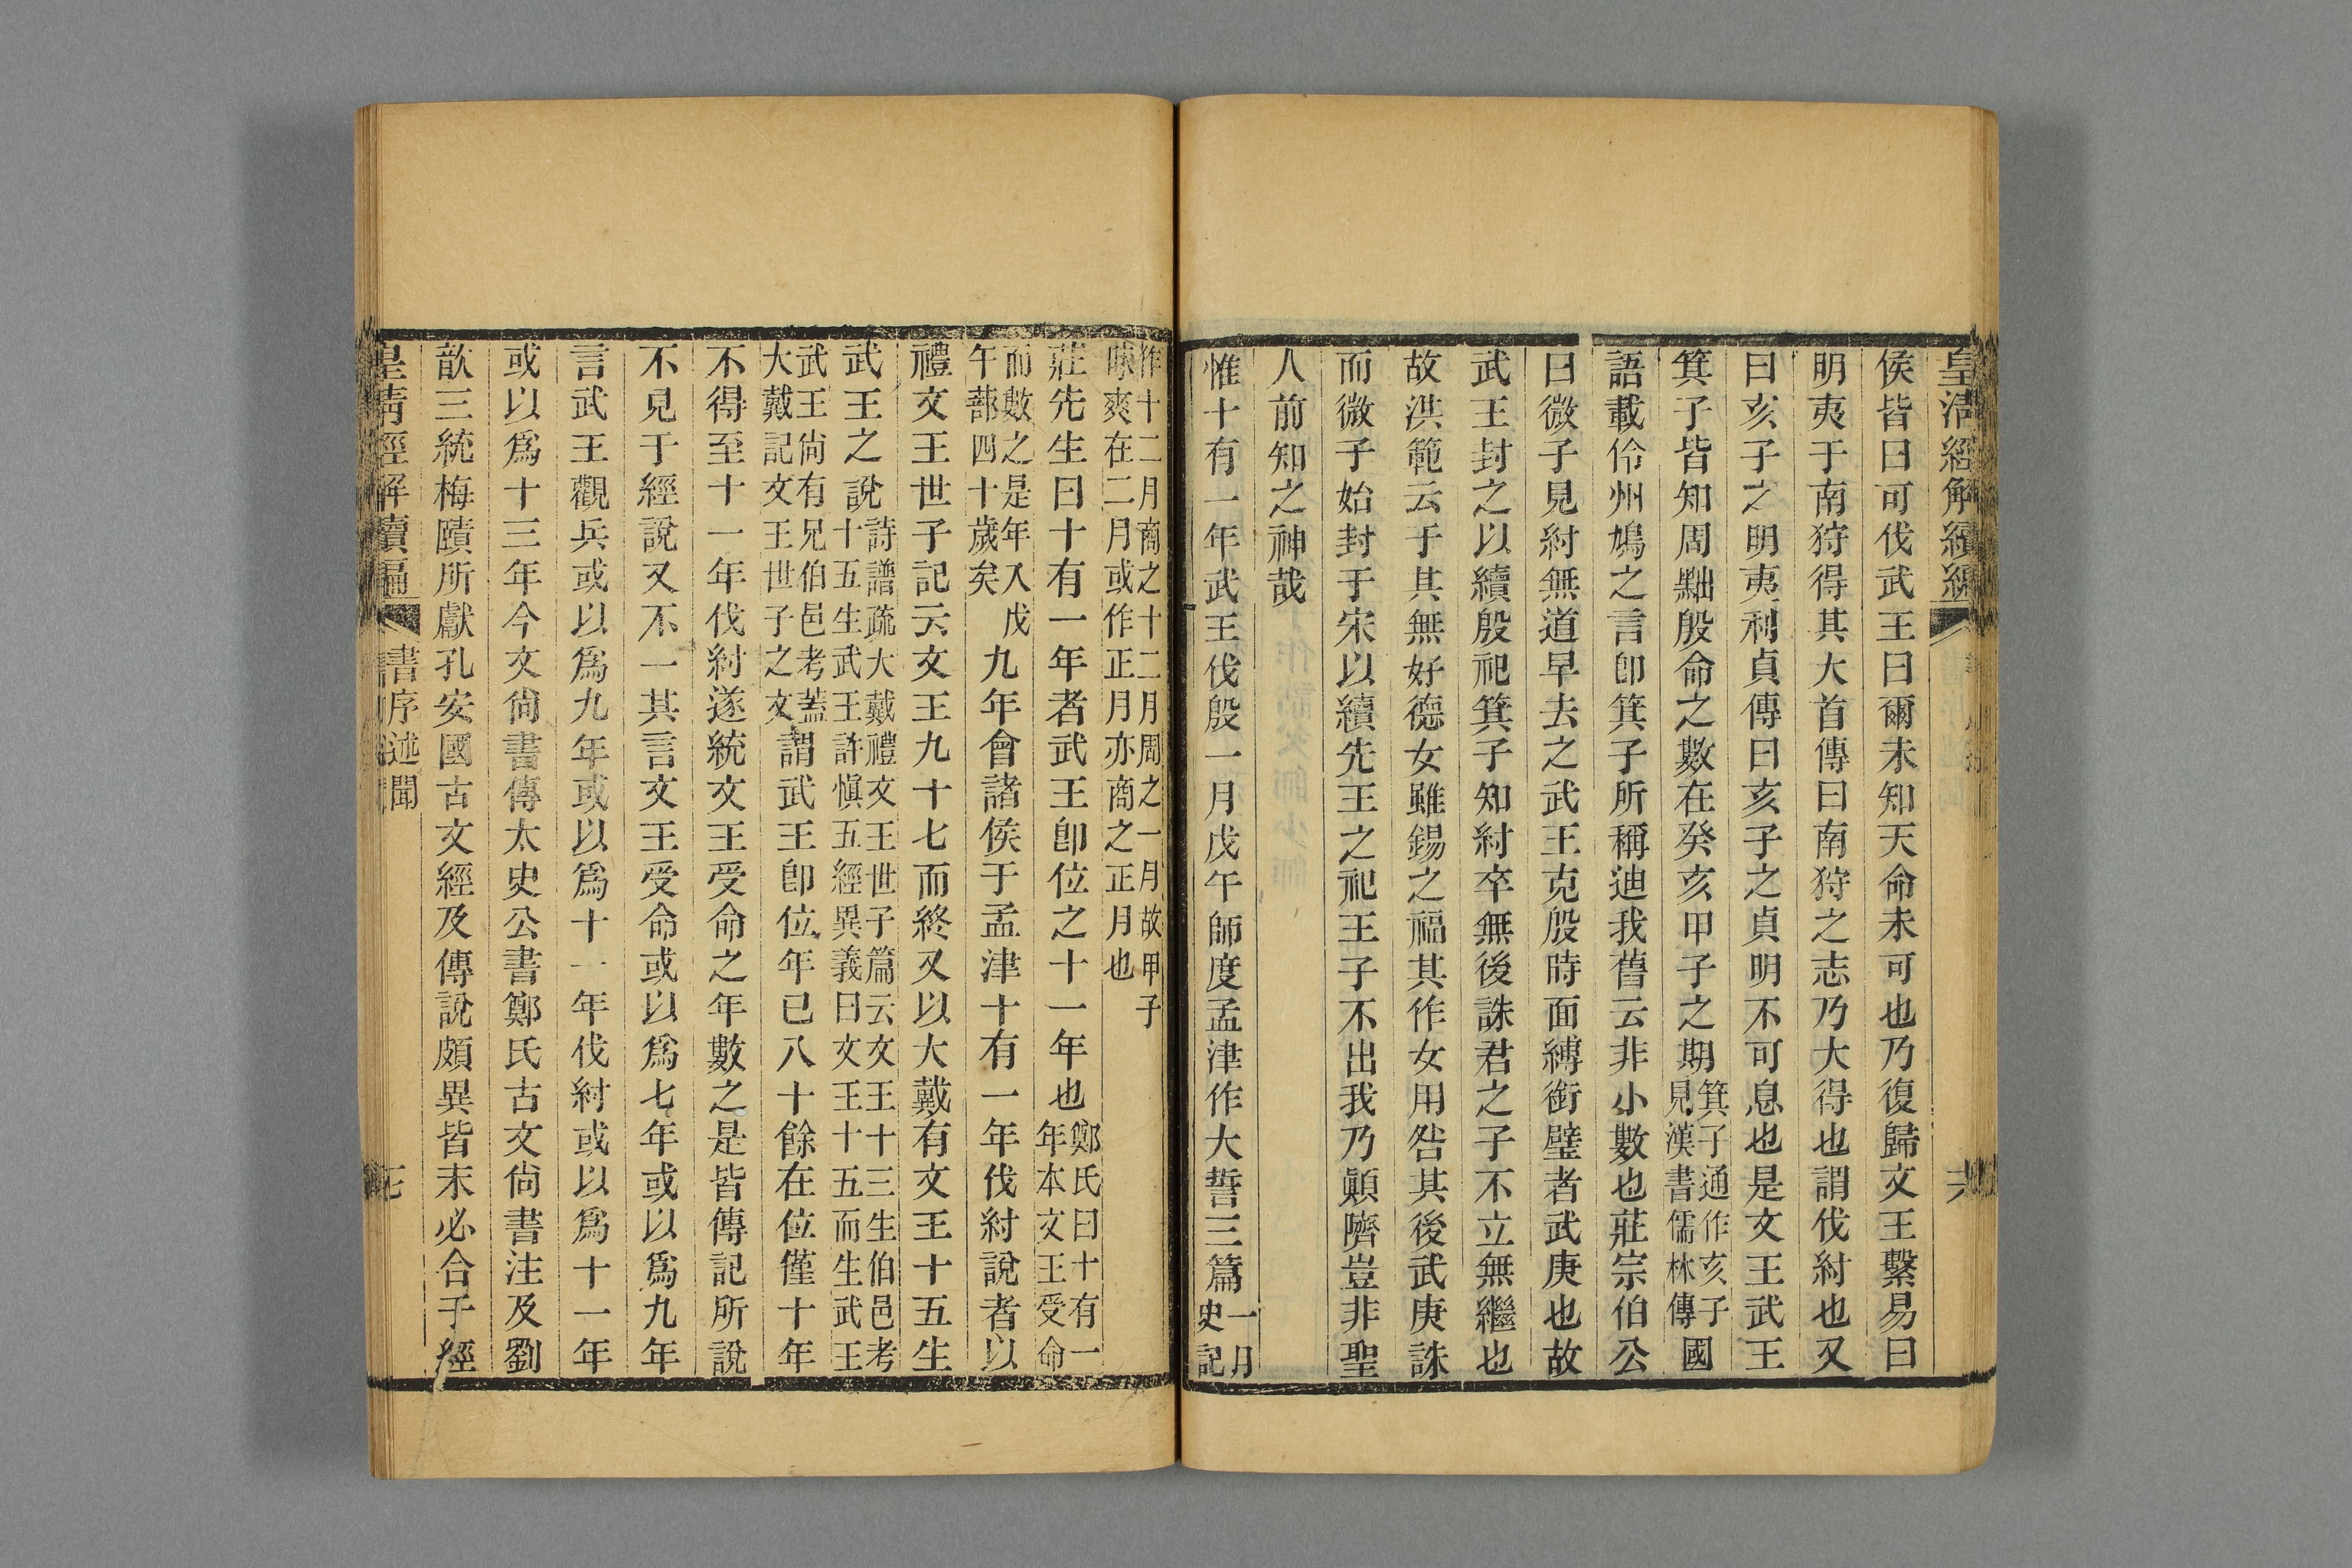 皇清經解續編
六
侯皆曰可伐武王曰爾未知天命未可也乃復歸文王繫易曰
明夷于南狩得其大首傳曰南狩之志乃大得也謂伐紂也又
曰亥子之明夷利貞傳曰亥子之貞明不可息也是文王武王
箕子皆知周黜殷命之數在癸亥甲子之期箕子通作亥子見漢書儒林傳國
語載伶州鳩之言卽箕子所稱迪我舊云非小數也莊宗伯公
曰微子見紂無道早去之武王克殷時面縛銜璧者武庚也故
武王封之以續殷祀箕子知紂卒無後誅君之子不立無繼也
故洪範云于其無好德女雖錫之福其作女用咎其後武庚誅
而微子始封于宋以續先王之祀王子不出我乃顚隮豈非聖
人前知之神哉
惟十有一年武王伐殷一月戊午師度孟津作大誓三篇一月史記
作十二月商之十二月周之一月故甲子昧爽在二月或作正月亦商之正月也
莊先生曰十有一年者武王卽位之十一年也鄭氏曰十有一年本文王受命
而數之是年入戊午蔀四十歲矣九年會諸侯于孟津十有一年伐紂說者以
禮文王世子記云文王九十七而終又以大戴有文王十五生
武王之說詩譜疏大戴禮文王世子篇云文王十三生伯邑考十五生武王許愼五經異義曰文王十五而生武王
武王尙有兄伯邑考蓋大戴記文王世子之文謂武王卽位年已八十餘在位僅十年
不得至十一年伐紂遂統文王受命之年數之是皆傳記所說
不見于經說又不一其言文王受命或以爲七年或以爲九年
言武王觀兵或以爲九年或以爲十一年伐紂或以爲十一年
或以爲十三年今文尙書傳太史公書鄭氏古文尙書注及劉
歆三統梅賾所獻孔安國古文經及傳說頗異皆未必合于經
皇清經解續編
書序述聞
七